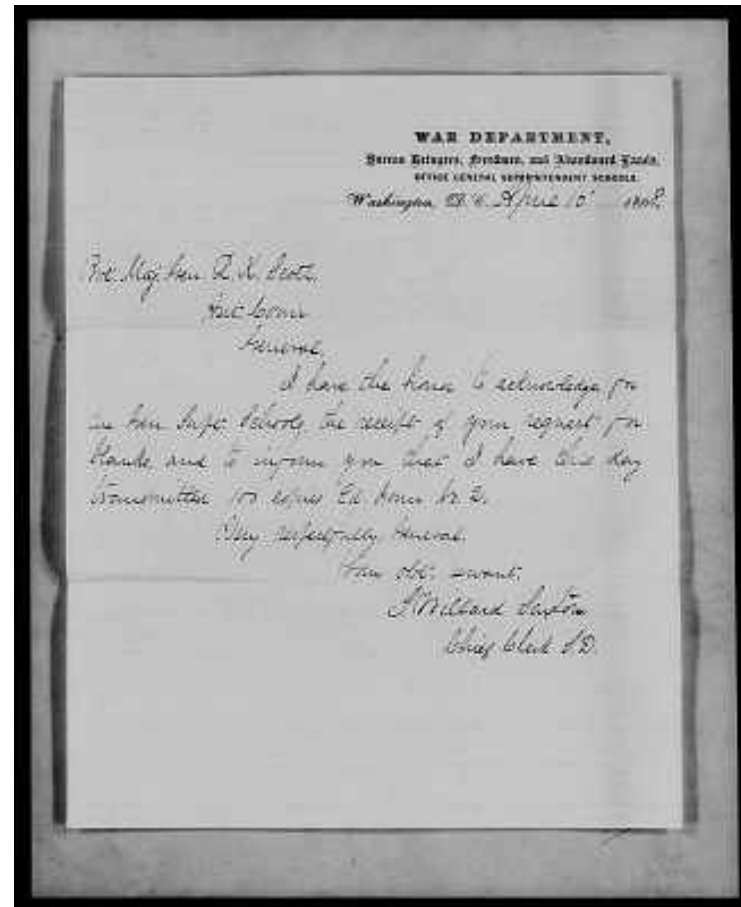 WAR DEPARTMENT,
Bureau Refugees, Freedmen, and Abandoned Lands,
OFFICE GENERAL SUPERINTENDENT SCHOOLS.
Washington, D. C. April 10 1868
Bvt. Maj. Gen. R. K. Scott.
Asst Comr
General,
I have the honor to acknowledge for
the Gen Supt. Schools, the receipt of your request for
blanks and to inform you that I have this day
transmitted 100 copies Ed. form No 2.
Very respectfully General.
Your obt. servant.
S Willard Saxton
Chief Clerk S.D.